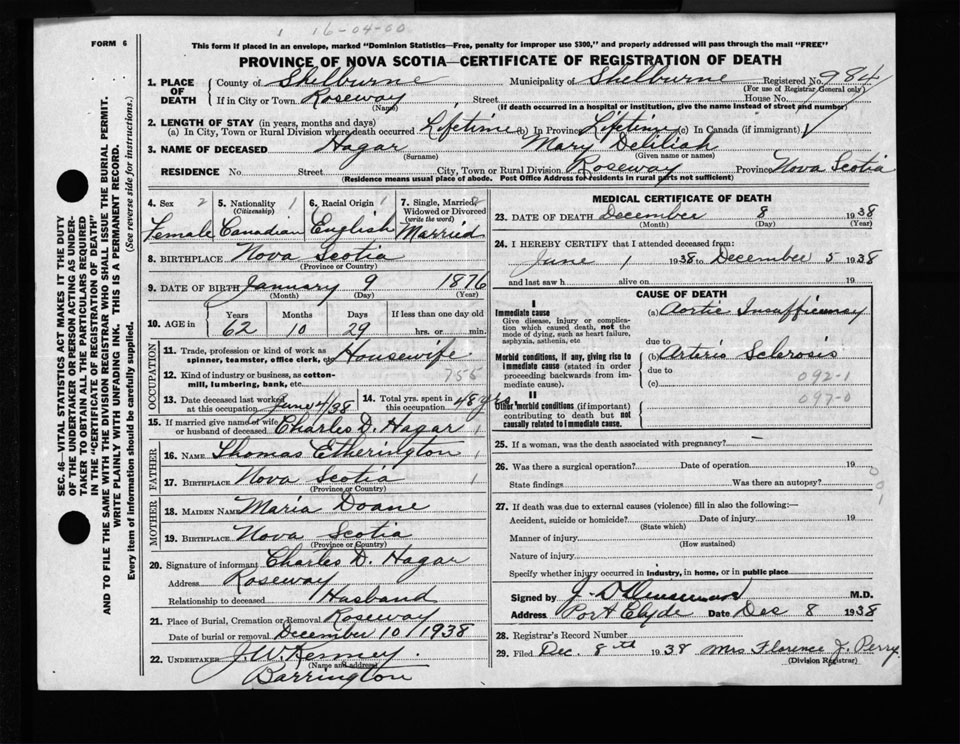 16-04-00
FORM 6
This form if placed in an envelope, marked "Dominion Statistics—Free, penalty for improper use $300," and properly addressed will pass through the mail "FREE"
PROVINCE OF NOVA SCOTIA—CERTIFICATE OF REGISTRATION OF DEATH
1. PLACE OF DEATH County of Shelburne Municipality of Shelburne Registered No. 984
(For use of Registrar General only)
If in City or Town Roseway Street House No.
(Name) (If death occurred in a hospital or institution, give the name instead of street and number)
2. LENGTH OF STAY (in years, months and days)
(a) In City, Town or Rural Division where death occurred Lifetime (b) In Province Lifetime (c) In Canada (if immigrant)
3. NAME OF DECEASED Hagar Mary Deliliah
(Surname) (Given name or names)
RESIDENCE No. Street City, Town or Rural Division Roseway Province Nova Scotia
(Residence means usual place of abode. Post Office Address for residents in rural parts not sufficient)
SEC. 46—VITAL STATISTICS ACT MAKES IT THE DUTY
OF THE UNDERTAKER OR PERSON ACTING AS UNDER-
TAKER TO OBTAIN ALL THE PARTICULARS REQUIRED
IN THE "CERTIFICATE OF REGISTRATION OF DEATH"
AND TO FILE THE SAME WITH THE DIVISION REGISTRAR WHO SHALL ISSUE THE BURIAL PERMIT.
WRITE PLAINLY WITH UNFADING INK. THIS IS A PERMANENT RECORD.
Every item of information should be carefully supplied. (See reverse side for instructions.)
4. Sex 2 5. Nationality 1 (Citizenship) 6. Racial Origin 1 7. Single, Married, Widowed or Divorced (write the word) 2
Female Canadian English Married
8. BIRTHPLACE Nova Scotia
(Province or Country)
9. DATE OF BIRTH January 9 1876
(Month) (Day) (Year)
10. AGE in Years Months Days If less than one day old
62 10 29 hrs. or min.
OCCUPATION
11. Trade, profession or kind of work as spinner, teamster, office clerk, etc. Housewife
12. Kind of industry or business, as cotton-mill, lumbering, bank, etc. 755
13. Date deceased last worked at this occupation June 4/38 14. Total yrs. spent in this occupation 48 yrs.
15. If married give name of wife or husband of deceased Charles D. Hagar 1
FATHER
16. NAME Thomas Etherington 1
17. BIRTHPLACE Nova Scotia 1
(Province or Country)
MOTHER
18. MAIDEN NAME Maria Doane
19. BIRTHPLACE Nova Scotia
(Province or Country)
20. Signature of informant Charles D. Hagar
Address Roseway
Relationship to deceased Husband
21. Place of Burial, Cremation or Removal Roseway
Date of burial or removal December 10/1938
22. UNDERTAKER J. W. Kenney.
(Name and address)
Barrington
MEDICAL CERTIFICATE OF DEATH
23. DATE OF DEATH December 8 1938
(Month) (Day) (Year)
24. I HEREBY CERTIFY that I attended deceased from:
June 1 1938 to December 5 1938
and last saw h alive on 19
CAUSE OF DEATH
I
Immediate cause (a) Aortic Insufficiency
Give disease, injury or complication which caused death, not the mode of dying, such as heart failure, asphyxia, asthenia, etc
due to
Morbid conditions, if any, giving rise to immediate cause (stated in order proceeding backwards from immediate cause). (b) Arterio Sclerosis
due to
(c) 092-1
II
097-0
Other morbid conditions (if important) contributing to death but not causally related to immediate cause.
25. If a woman, was the death associated with pregnancy? –
26. Was there a surgical operation? Date of operation 19 0
State findings Was there an autopsy? 0
27. If death was due to external causes (violence) fill in also the following:— 1
Accident, suicide or homicide? Date of injury 19
(State which)
Manner of injury
(How sustained)
Nature of injury
Specify whether injury occurred in industry, in home, or in public place
Signed by J. D. M.D.
Address Port Clyde Date Dec 8 1938
28. Registrar's Record Number
29. Filed Dec. 8th 1938 Mrs Florence J. Perry.
(Division Registrar)